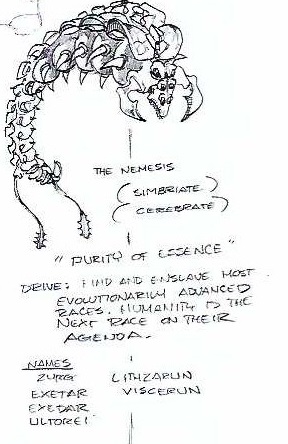 THE NEMESIS
(SIMBRIATE)
(CEREBRATE)
"PURITY OF ESSENCE"
DRIVE: FIND AND ENSLAVE MOST
EVOLUTIONARILY ADVANCED
RACES. HUMANITY IS THE
NEXT RACE ON THEIR
AGENDA.
NAMES
ZURG LITHZARUN
EXETAR VISCERUN
EXEDAR
ULTOREI